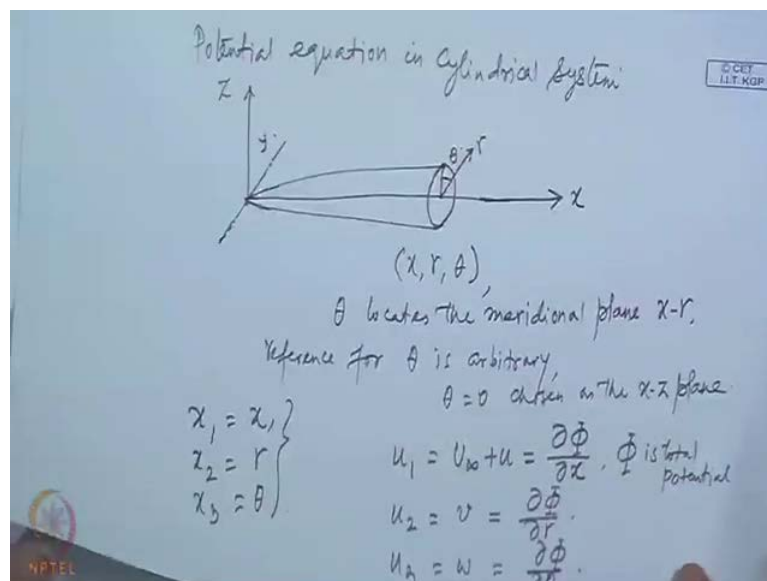 Potential equation in Cylindrical System
© CET
I.I.T. KGP
Z
y
θ r
x
(x, r, θ),
θ locates the meridional plane x-r,
reference for θ is arbitrary,
θ = 0 chosen as the x-z plane
x₁ = x,
x₂ = r
x₃ = θ
u₁ = U∞ + u = ∂Φ/∂x, Φ is total potential
u₂ = v = ∂Φ/∂r.
u₃ = w =
NPTEL